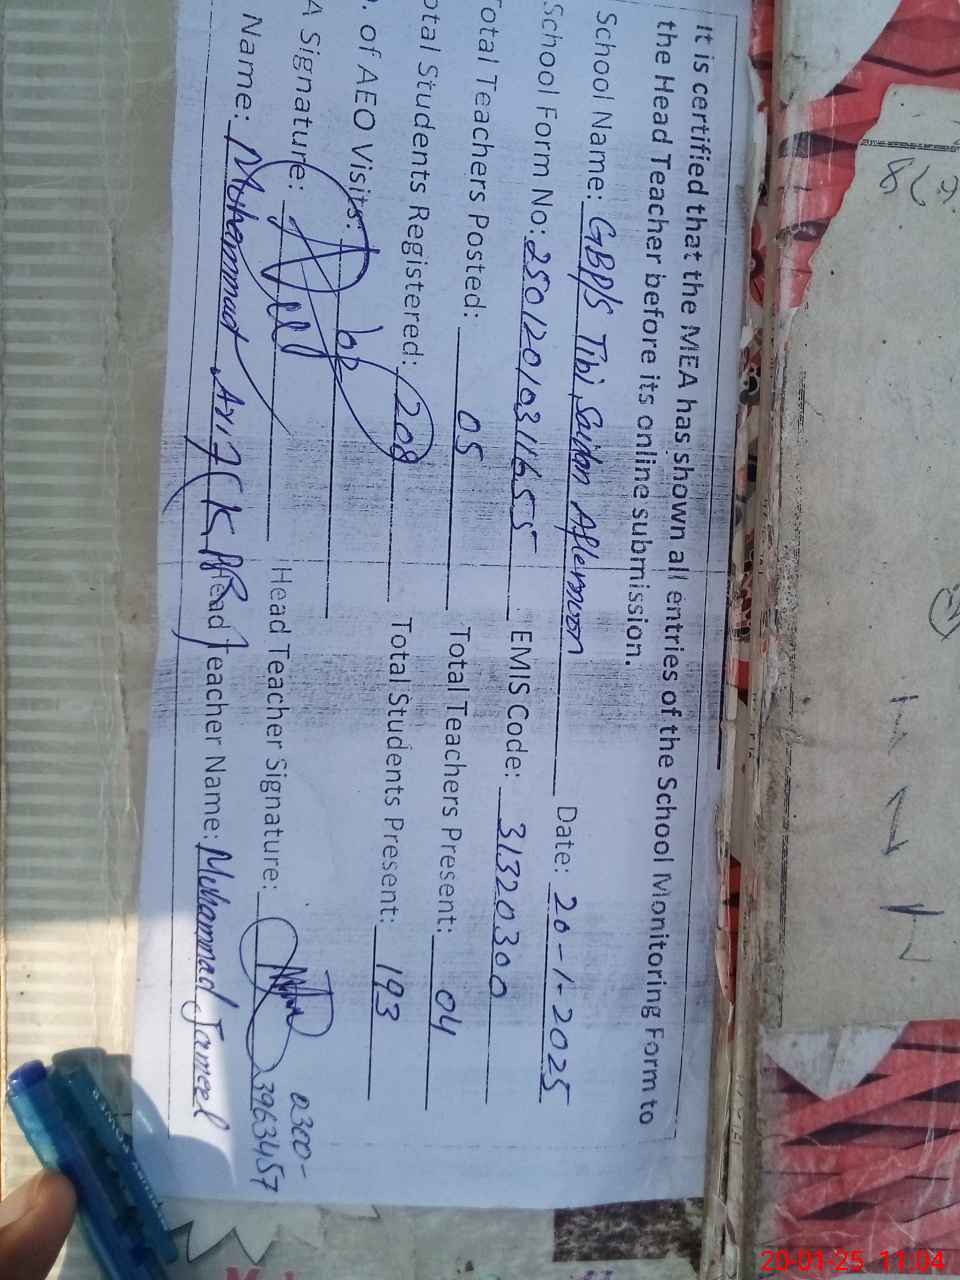 It is certified that the MEA has shown all entries of the School Monitoring Form to
the Head Teacher before its online submission.
School Name: GBP/S Tibi Saidan Afternoon Date: 20-1-2025
School Form No: 25012010311655 EMIS Code: 31320300
Total Teachers Posted: 05 Total Teachers Present: 04
otal Students Registered: 208 Total Students Present: 193
. of AEO Visits:
A Signature: Head Teacher Signature: 0300-
3963457
Name: Muhammad Arif Head Teacher Name: Muhammad Jameel
28
20-01-25 11:04